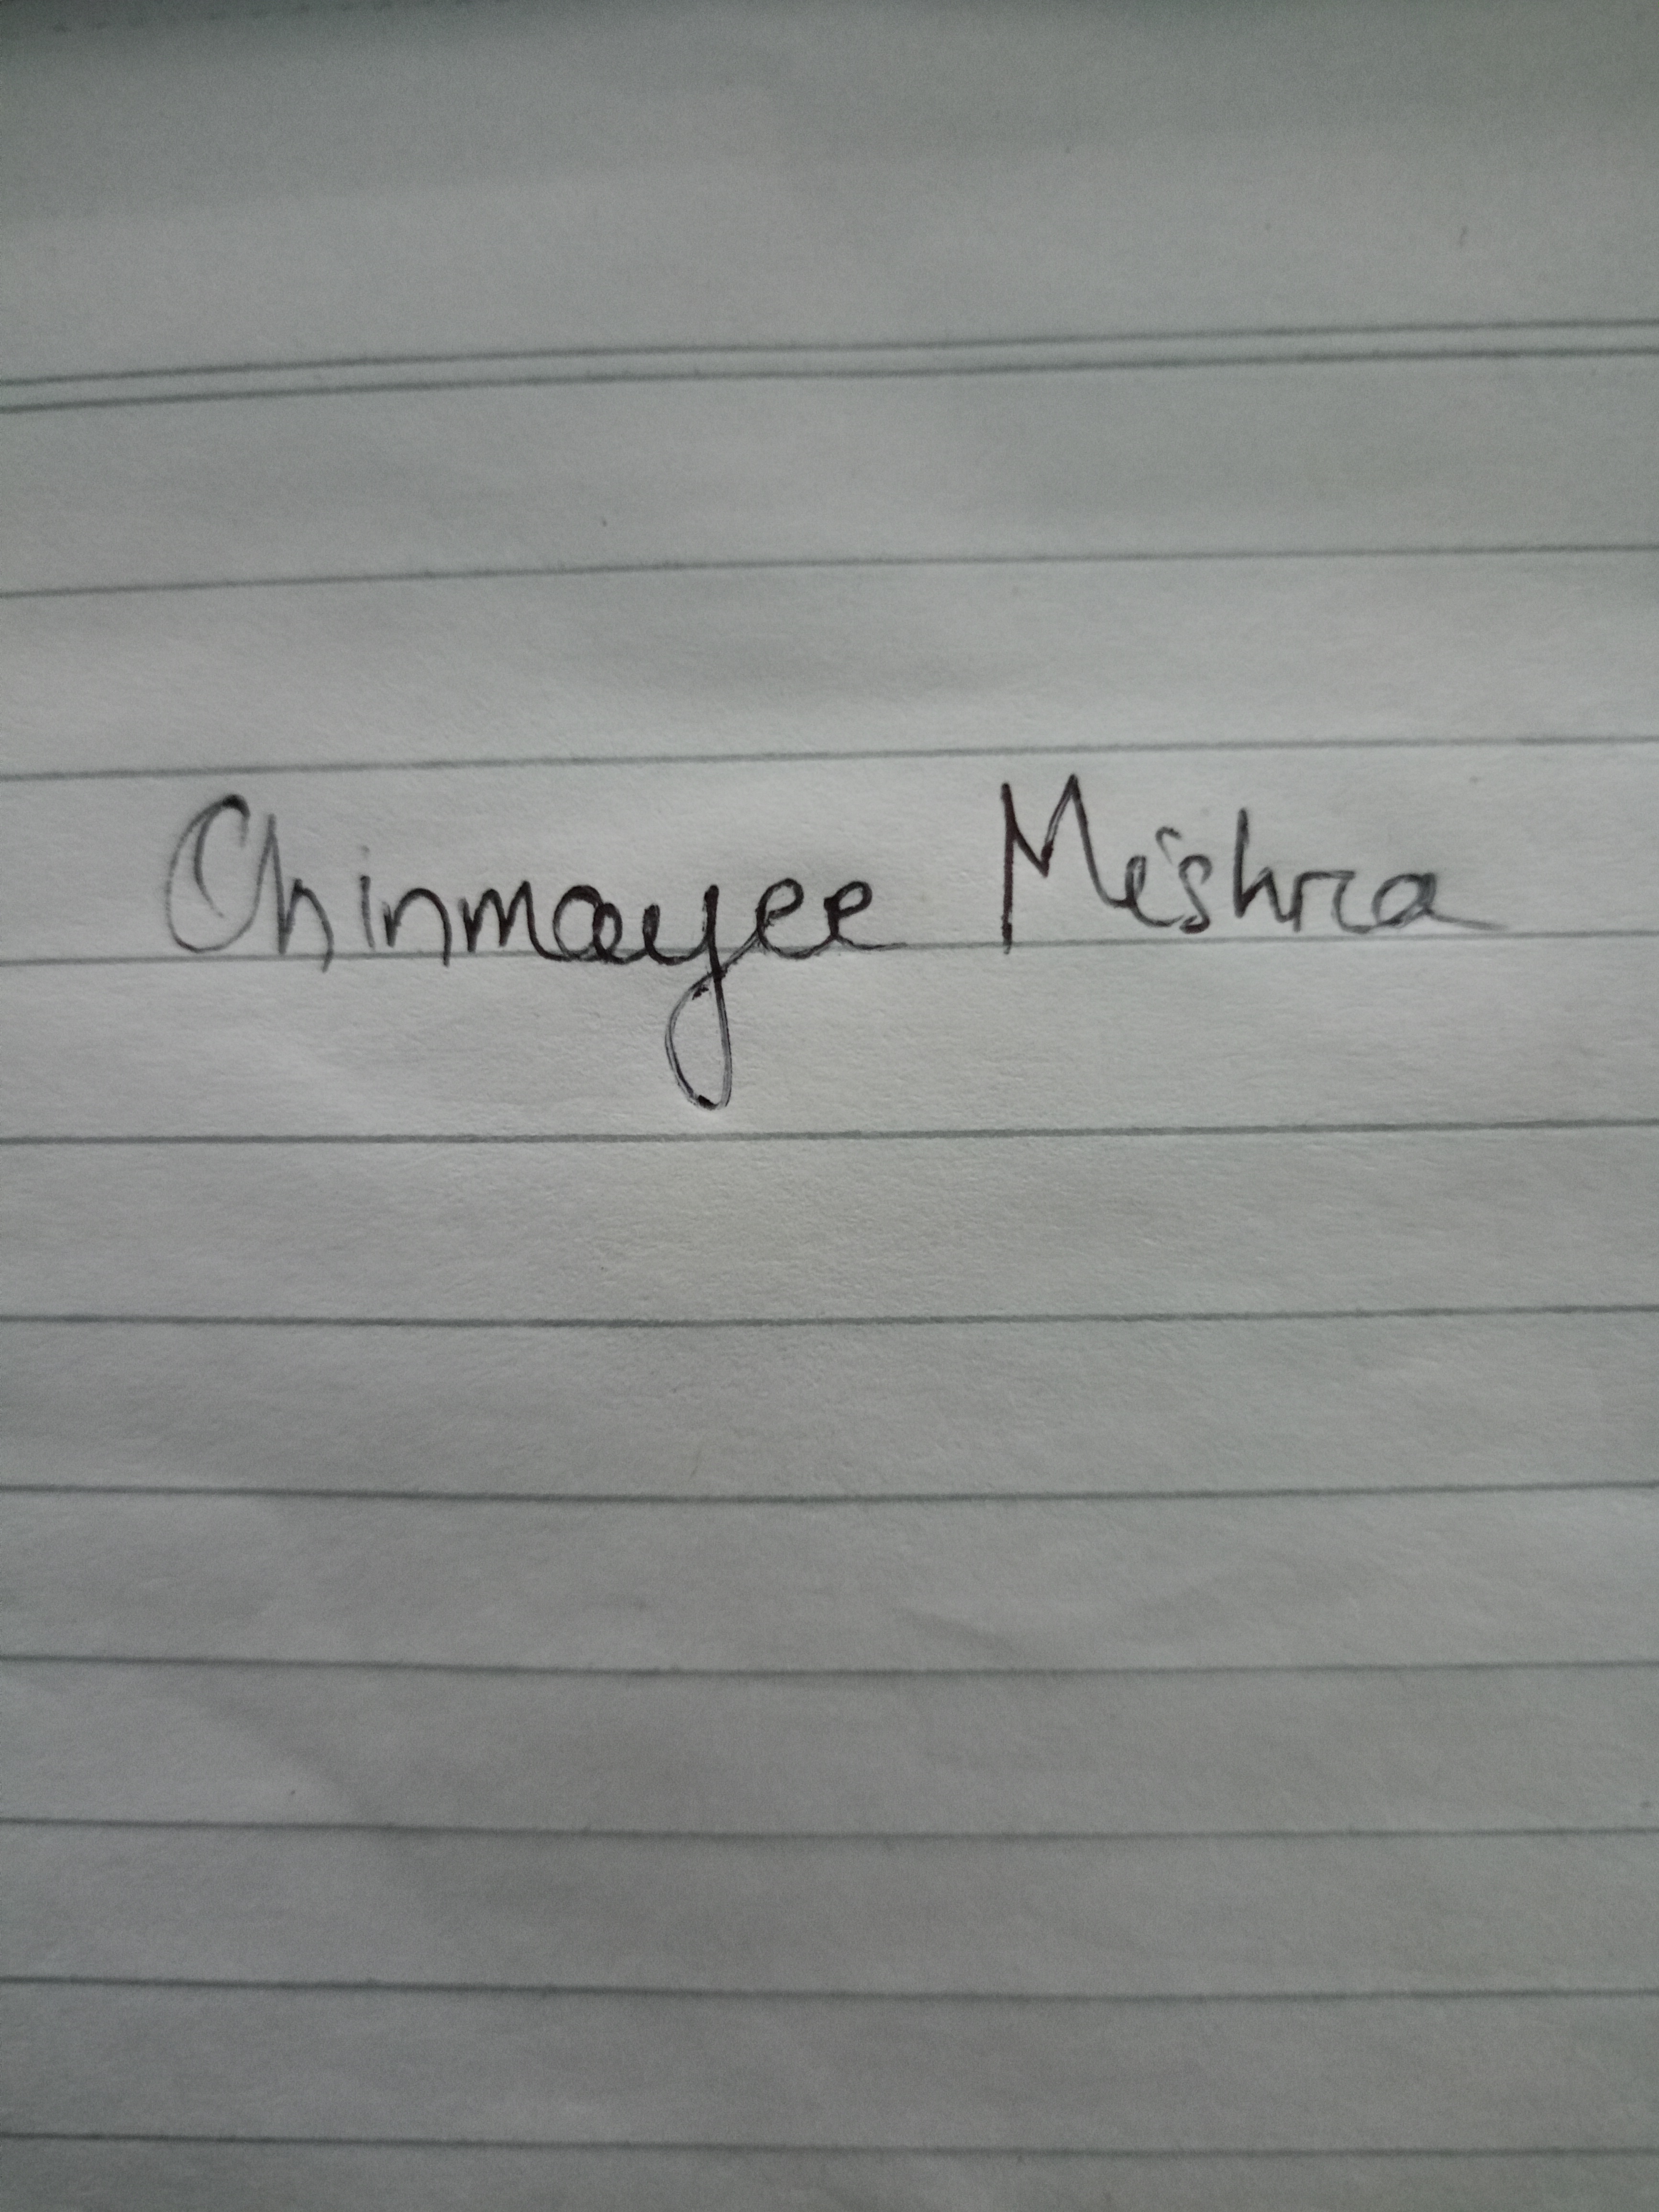 Chinmayee Mishra